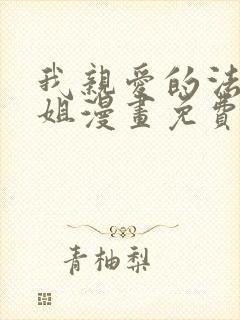 我親愛的法
姐漫畫免費
青柚梨